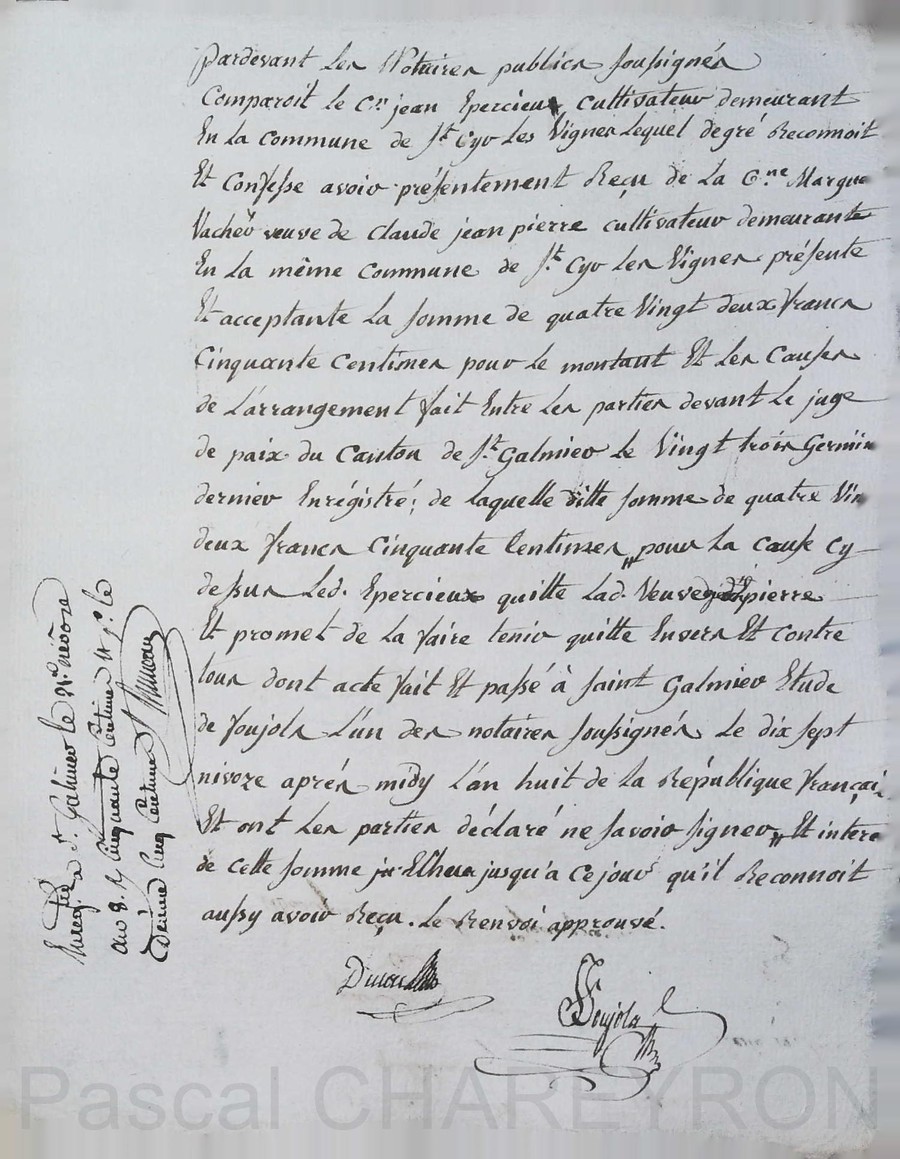 Pardevant Les Notaires publics soussignés
Comparoit le C.en jean Epercieux cultivateur demeurant
En La Commune de S.t Cyr Les Vignes Lequel degré Reconnoit
Et Confesse avoir présentement Reçu de La C.ne Margue
Vacher veuve de claude jean pierre cultivateur demeurante
En La même Commune de S.t Cyr Les Vignes présente
Et acceptante La somme de quatre Vingt deux francs
Cinquante Centimes pour le montant Et Les Causes
de L'arrangement fait Entre Les parties devant Le juge
de paix du Canton de S.t Galmier Le Vingt trois Germin
dernier Enrégistré; de Laquelle ditte somme de quatre Vin
deux francs Cinquante Centimes pour La cause Cy
dessus Led. Epercieux quitte Lad. Veuve pierre
Et promet de La faire tenir quitte Envers Et contre
tous dont acte fait Et passé à saint Galmier Etude
de Soujols L'un des notaires soussignés Le dix sept
nivoze après midy L'an huit de La République françai
Et ont Les parties déclaré ne savoir signer, Et intere
de cette somme jusqu'a Ce jour qu'il Reconnoit
aussy avoir Reçu. Le Renvoi approuvé.
Soujols
Enreg.tré a S.t Galmier le 21 nivose
an 8. Cinquante Centimes
Dixième Cinq Centimes
Pascal CHAREYRON